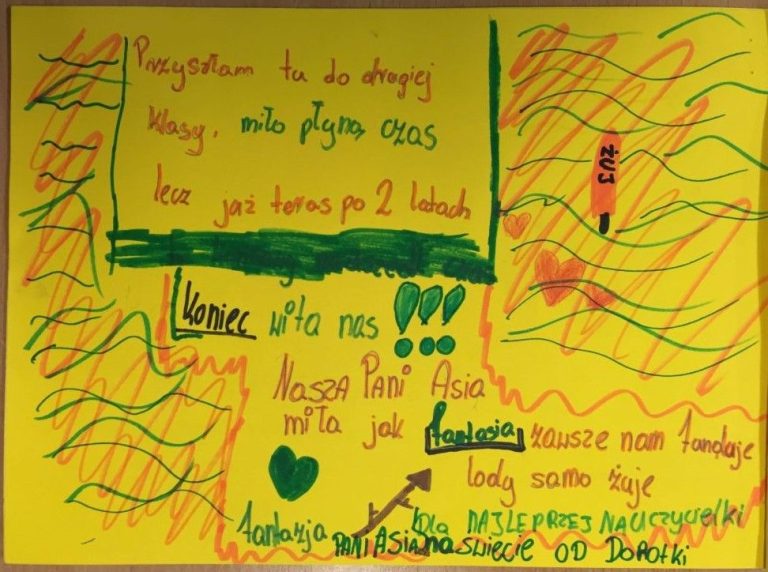 Przyszłam tu do drugiej
klasy, miło płyną czas
lecz jaż teras po 2 latach
Koniec wita nas !!!
Nasza Pani Asia
miła jak fantasia zawsze nam fanduje
lody samo żuje
fantazja
Dla NAJLEPRZEJ NAUCZYCIELKI
PANI Asia na świecie OD DOROTKI
żuj